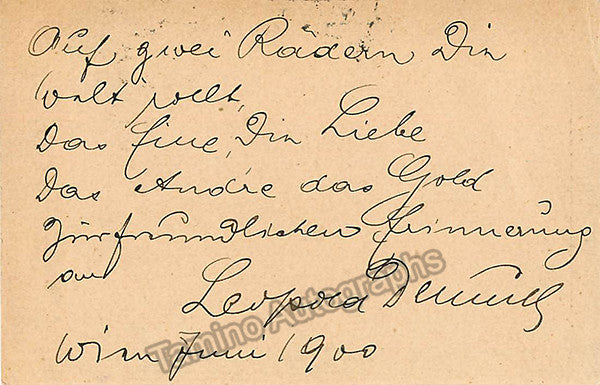 Auf zwei Rädern Die
Welt rollt,
Das Eine, Die Liebe
Das Andre das Gold
Zur freundlichen Erinnerung
an
Leopold Demuth
Wien Juni 1900
Tamino Autographs